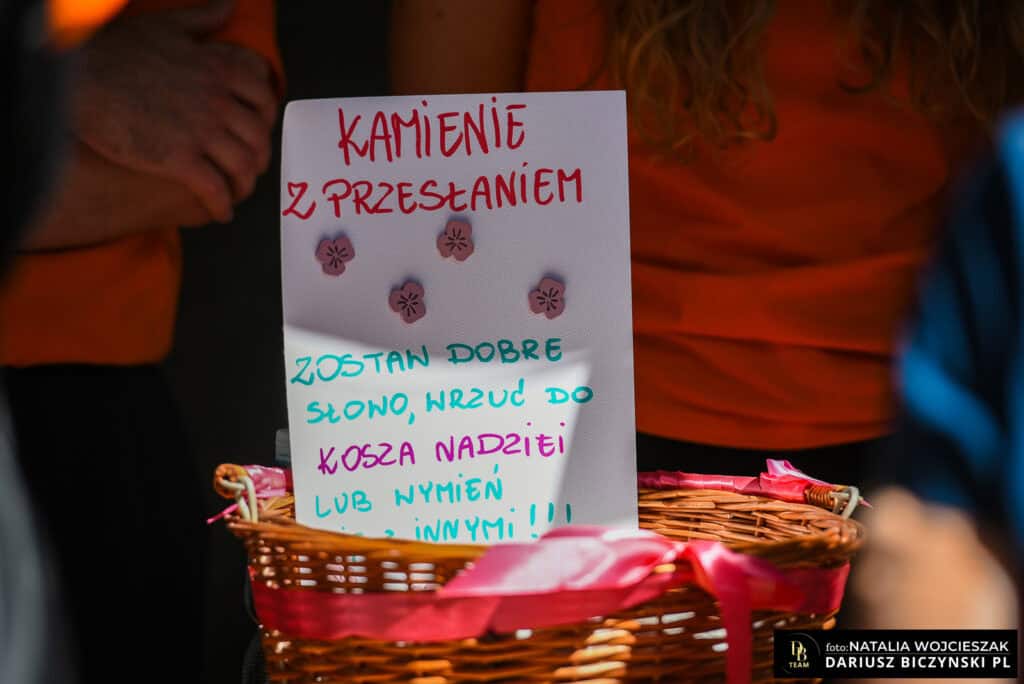 KAMIENIE
Z PRZESŁANIEM
ZOSTAW DOBRE
SŁOWO, WRZUĆ DO
KOSZA NADZIEI
LUB WYMIEŃ
Z INNYMI!!!
DB
TEAM
foto: NATALIA WOJCIESZAK
DARIUSZ BICZYNSKI PL